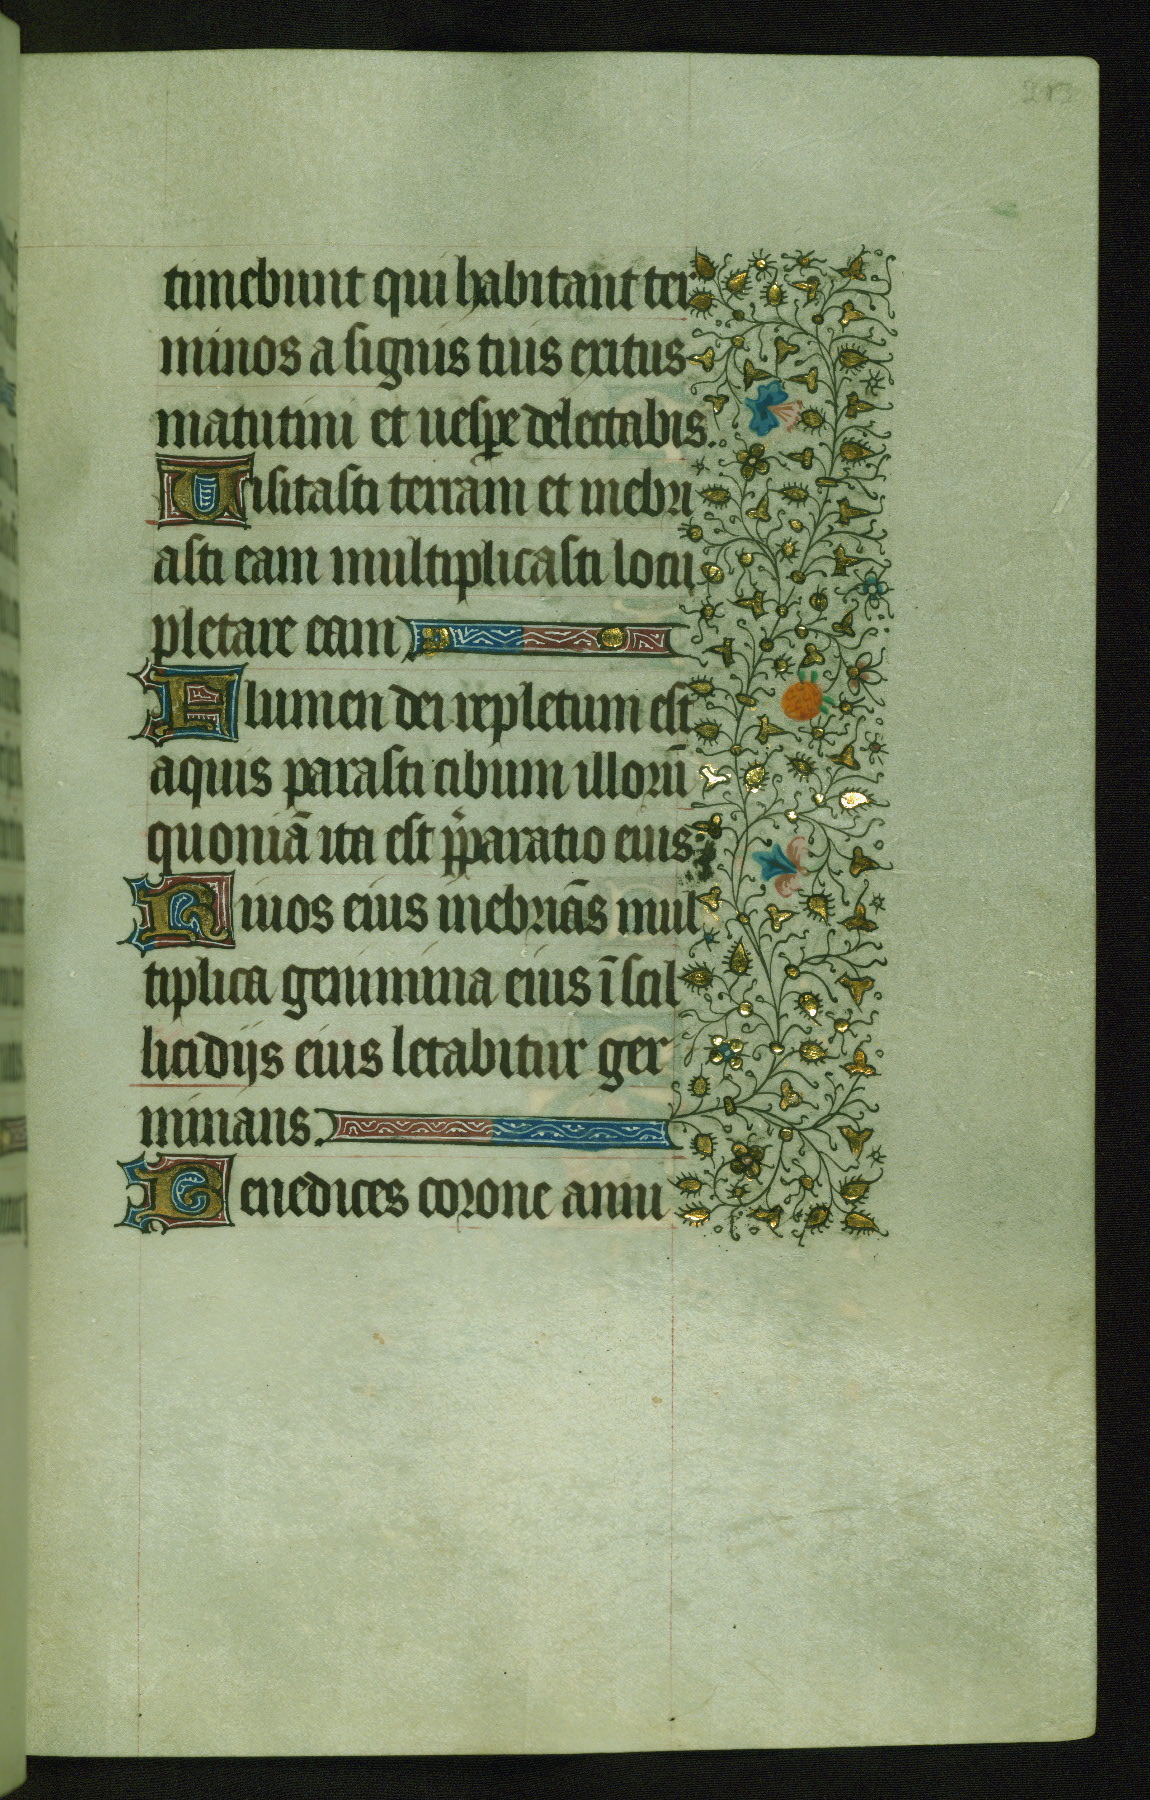 timebunt qui habitant ter
minos a signis tuis exitus
matutini et uespe delectabis.
Uisitasti terram et inebri
asti eam multiplicasti locu
pletare eam
Flumen dei repletum est
aquis parasti cibum illorū
quoniā ita est p̄paratio eius
Riuos eius inebriās mul
tiplica genimina eius ī stil
licidijs eius letabitur ger
minans.
Benedices corone anni